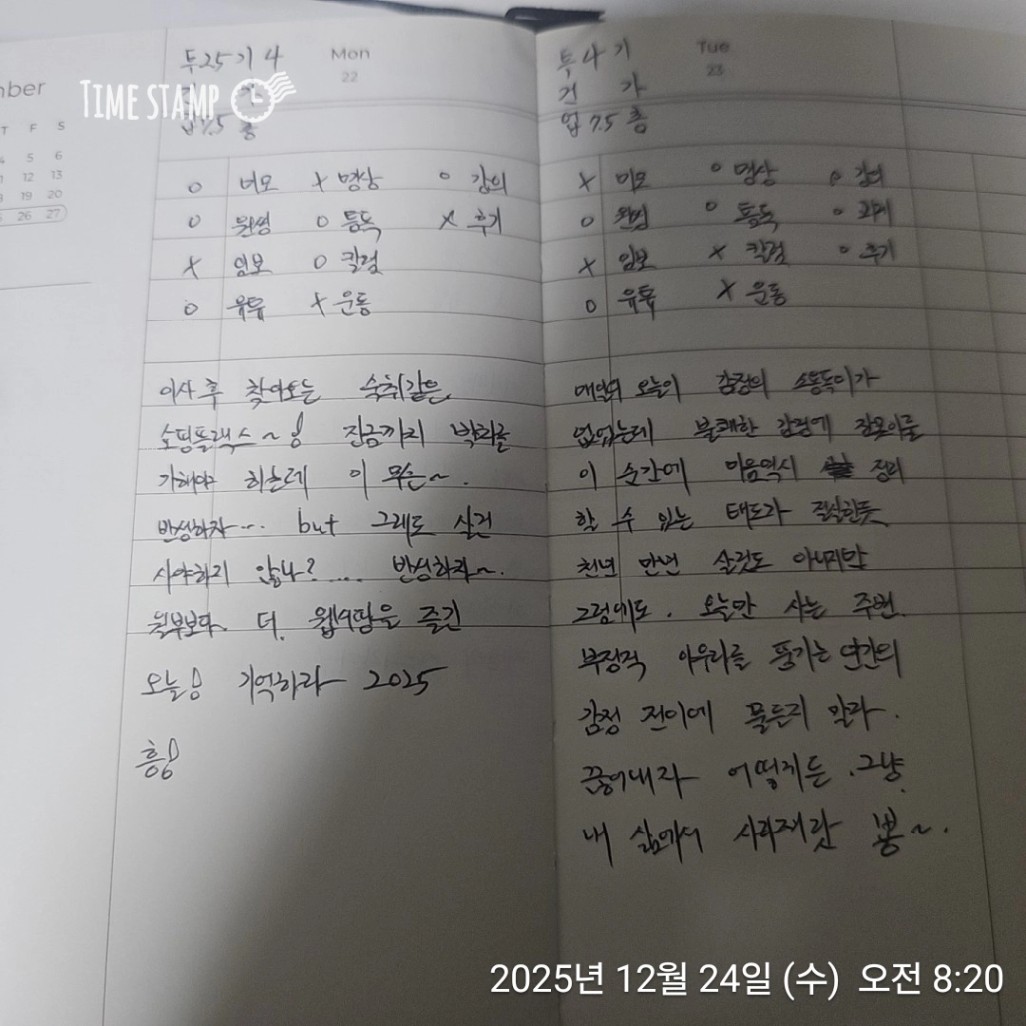 mber
T F S
4 5 6
11 12 13
18 19 20
25 26 27
TIME STAMP
투25기 4
Mon
22
가
업7.5 층
o 미모 x 명상 o 강의
o 원영 o 통독 x 후기
x 임보 o 칼럼
o 유튜 x 운동
이사 후 찾아오는 숙취같은
쇼핑플랙스~! 잔금까지 박차를
가해야 하는데 이 무슨~.
반성하자... but 그래도 살건
사야하지 않나?.... 반성하자~.
월부보다 더. 을 즐긴
오늘! 기억하라 2025
흥!
투4기
Tue
23
거 가
업 7.5 층
x 미모 o 명상 o 강의
o 원영 o 통독 o 과제
x 임보 x 칼럼 o 후기
o 유튜 x 운동
매일의 오늘이 감정의 소용돌이가
없었는데 불쾌한 감정에 잠못이룰
이 순간에 마음역시 정리
할 수 있는 태도가 절실한듯
천년 만년 살것도 아니지만
그럼에도. 오늘만 사는 주변
부정적 아우라를 풍기는 인간의
감정 전이에 물든지 말라.
끊어내자 어떻게든. 그냥.
내 삶에서 사라져랏 뿅~.
2025년 12월 24일 (수) 오전 8:20